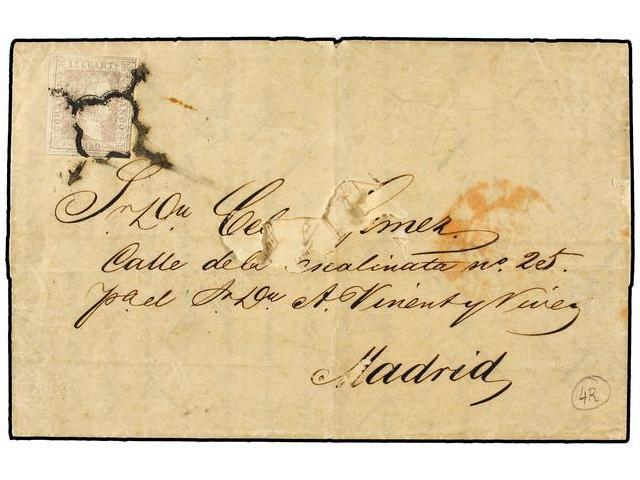 12 CUART.
Sr. Dn. Gomez.
Calle de la Escalinata nº. 25.
pa el Sr. Dn. A. Vinent y Vives
Madrid
4R